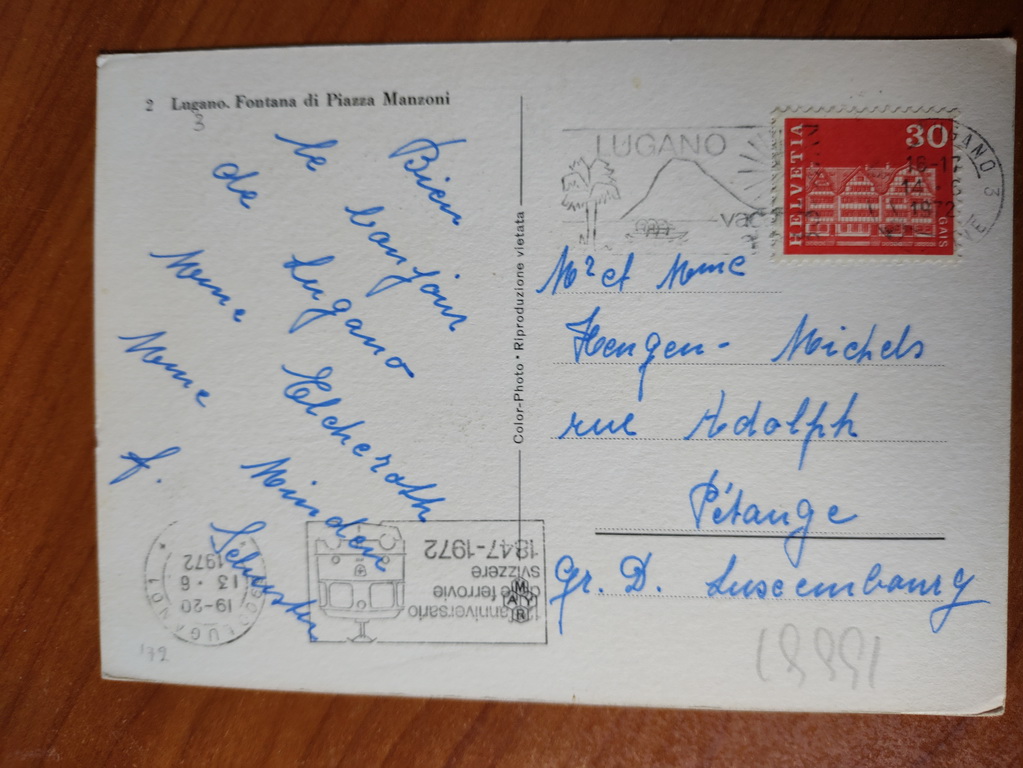 2 Lugano. Fontana di Piazza Manzoni
3
Bien
le bonjour
de Lugano
Mme Elcheroth
Mme Minden
f. Schuster
Color-Photo • Riproduzione vietata
MAYR
LUGANO
vac
HELVETIA
30
GAIS
LUGANO 3
16-17
14
1972
Mr et Mme
Hengen-Michels
rue Adolph
Pétange
Gr. D. Luxembourg
anniversario
ferrovie
svizzere
1847-1972
LUGANO 1
19-20
13.6
1972